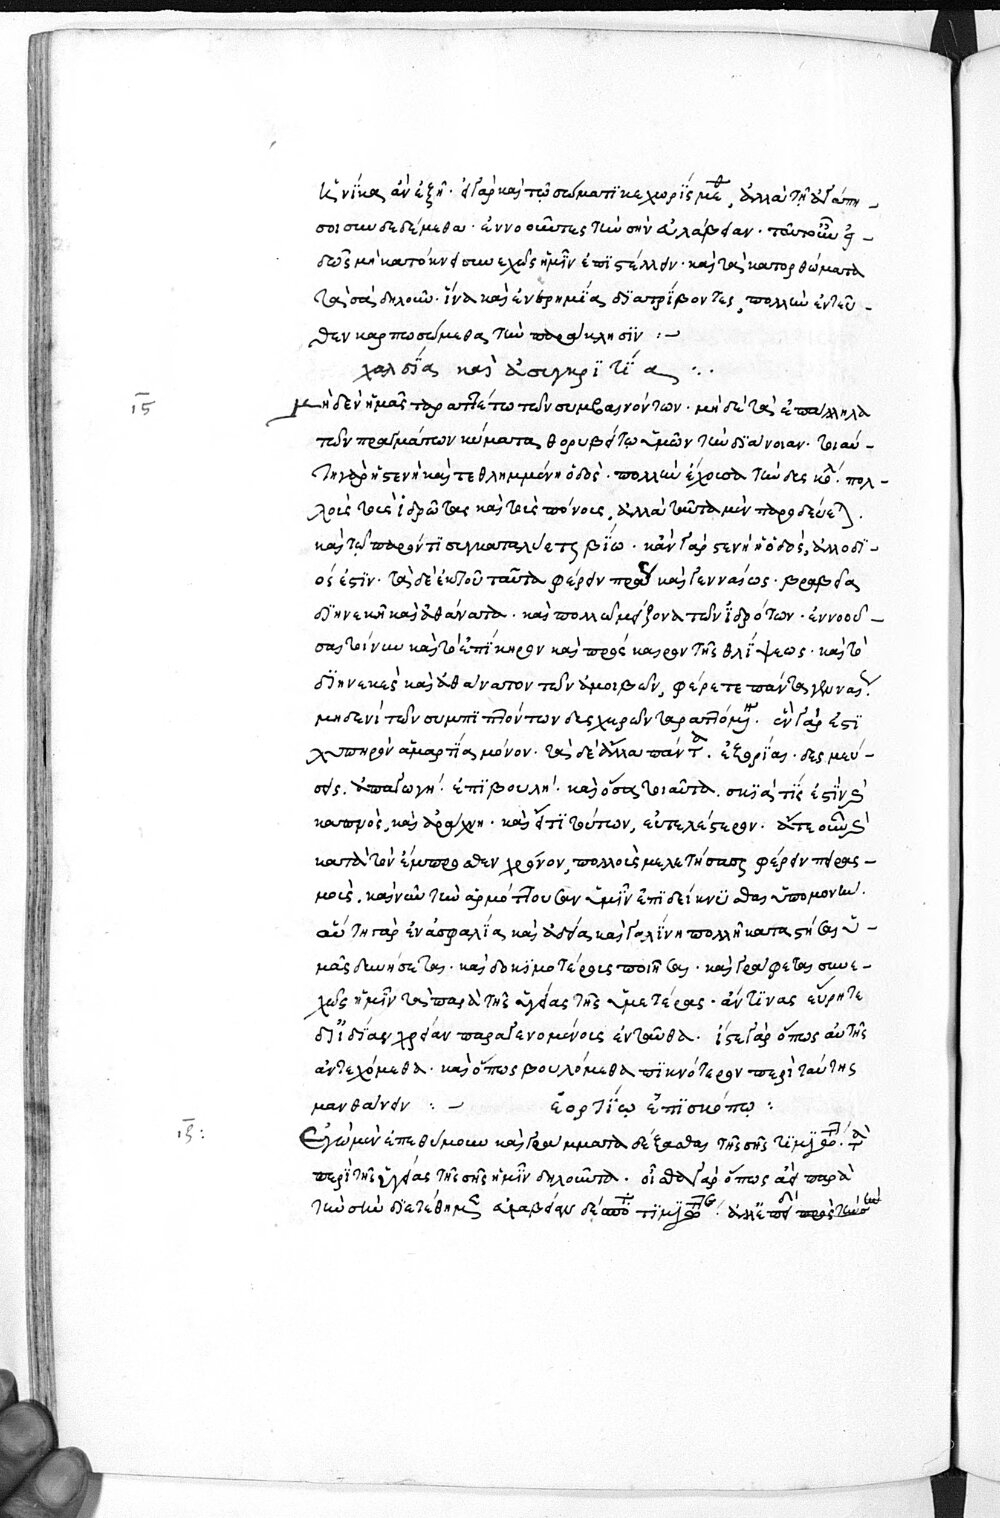 ἡνίκα ἂν ἐξῇ· εἰ γὰρ καὶ τῷ σώματι κεχωρίσμεθα, ἀλλὰ τῇ ἀγάπῃ
σοι συνδεδέμεθα· ἐννοοῦντες τὴν σὴν εὐλάβειαν· τοῦτο οὖν εἰ-
δὼς μὴ κατόκνει συνεχῶς ἡμῖν ἐπιστέλλειν· καὶ τὰ κατορθώματα
τὰ σὰ δηλοῦν· ἵνα καὶ ἐν ἐρημίᾳ διατρίβοντες, πολλὴν ἐντεῦ-
θεν καρπωσώμεθα τὴν παράκλησιν :-
καὶ ἀσυγκριτία
ις
μηδὲν ἡμᾶς ταραττέτω τῶν συμβαινόντων· μηδὲ τὰ ἐπάλληλα
τῶν πραγμάτων κύματα θορυβείτω ὑμῶν τὴν διάνοιαν. τοιαύ-
τη γὰρ ἡ στενὴ καὶ τεθλιμμένη ὁδός· πολλὴν ἔχουσα τὴν δυσκολ· πολ-
λοὺς τοὺς ἱδρῶτας καὶ τοὺς πόνους, ἀλλὰ ταῦτα μὲν παροδεύεται.
καὶ τῷ παρόντι συγκαταλύεται βίῳ· κἂν γὰρ στενὴ ἡ ὁδὸς, ἀλλ' ὁδι-
ός ἐστιν· τὰ δὲ ἐκ τοῦ ταῦτα φέρειν πράως καὶ γενναίως· βραβεῖα
διηνεκῆ καὶ ἀθάνατα· καὶ πολλῷ μείζονα τῶν ἱδρώτων· ἐννοοῦ-
σαι τοίνυν καὶ τὸ ἐπίκηρον καὶ πρόσκαιρον τῆς θλίψεως· καὶ τὸ
διηνεκὲς καὶ ἀθάνατον τῶν ἀμοιβῶν, φέρετε πάντα γενναίως.
μηδενὶ τῶν συμπιπτόντων δυσχερῶν ταραττόμεναι. ἓν γάρ ἐστι
λυπηρὸν ἁμαρτία μόνον· τὰ δὲ ἄλλα πάντα. ἐξορίαι· δημεύ-
σεις. ἀπαγωγή· ἐπιβουλή· καὶ ὅσα τοιαῦτα. σκιά τίς ἐστιν καὶ
καπνὸς, καὶ ἀράχνη· καὶ εἴ τι τούτων, εὐτελέστερον. ἅτε οὖν καὶ
κατὰ τὸν ἔμπροσθεν χρόνον, πολλοὺς μελετήσασαι φέρειν πειρασ-
μούς. καὶ νῦν τὴν ἁρμόττουσαν ὑμῖν ἐπιδείκνυσθαι ὑπομονήν.
αὕτη γὰρ ἐν ἀσφαλείᾳ καὶ ἀδείᾳ καὶ γαλήνῃ πολλῇ καταστῆσαι ὑ-
μᾶς δυνήσεται· καὶ δοκιμωτέρους ποιῆσαι· καὶ γράφετε συνε-
χῶς ἡμῖν τὰ παρὰ τῆς ὑγείας τῆς ὑμετέρας· ἄν τινας εὕρητε
δι' ἰδίαν χρείαν παραγενομένους ἐνταῦθα. ἴστε γὰρ ὅπως αὐτῆς
ἀντεχόμεθα· καὶ ὅπως βουλόμεθα πυκνότερον περὶ ταύτης
μανθάνειν :- ἑορτίῳ ἐπισκόπῳ :
ιζ:
Ἐγὼ μὲν ἐπεθύμουν καὶ γράμματα δέξασθαι τῆς σῆς τιμιότητος· τὰ
περὶ τῆς ὑγείας τῆς σῆς ἡμῖν δηλοῦντα. οἶσθα γὰρ ὅπως ἀεὶ παρὰ
τὴν σὴν διετέθημεν εὐλάβειαν δέσποτα τιμιώτατε· ἀλλ'